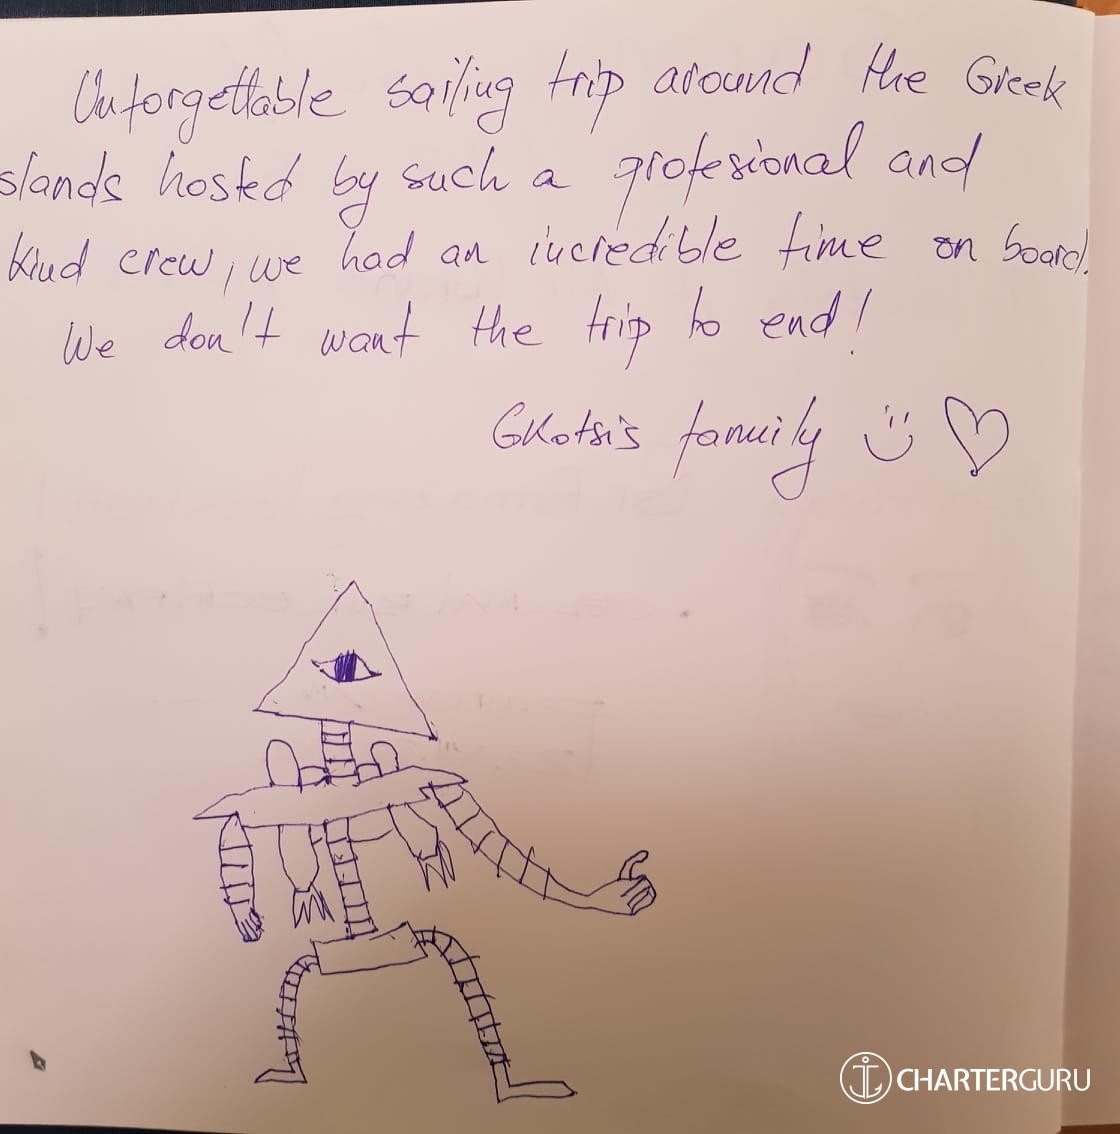 Unforgettable sailing trip around the Greek
slands hosted by such a profesional and
kind crew, we had an incredible time on board.
We don't want the trip to end!
GKotsis family
CHARTERGURU